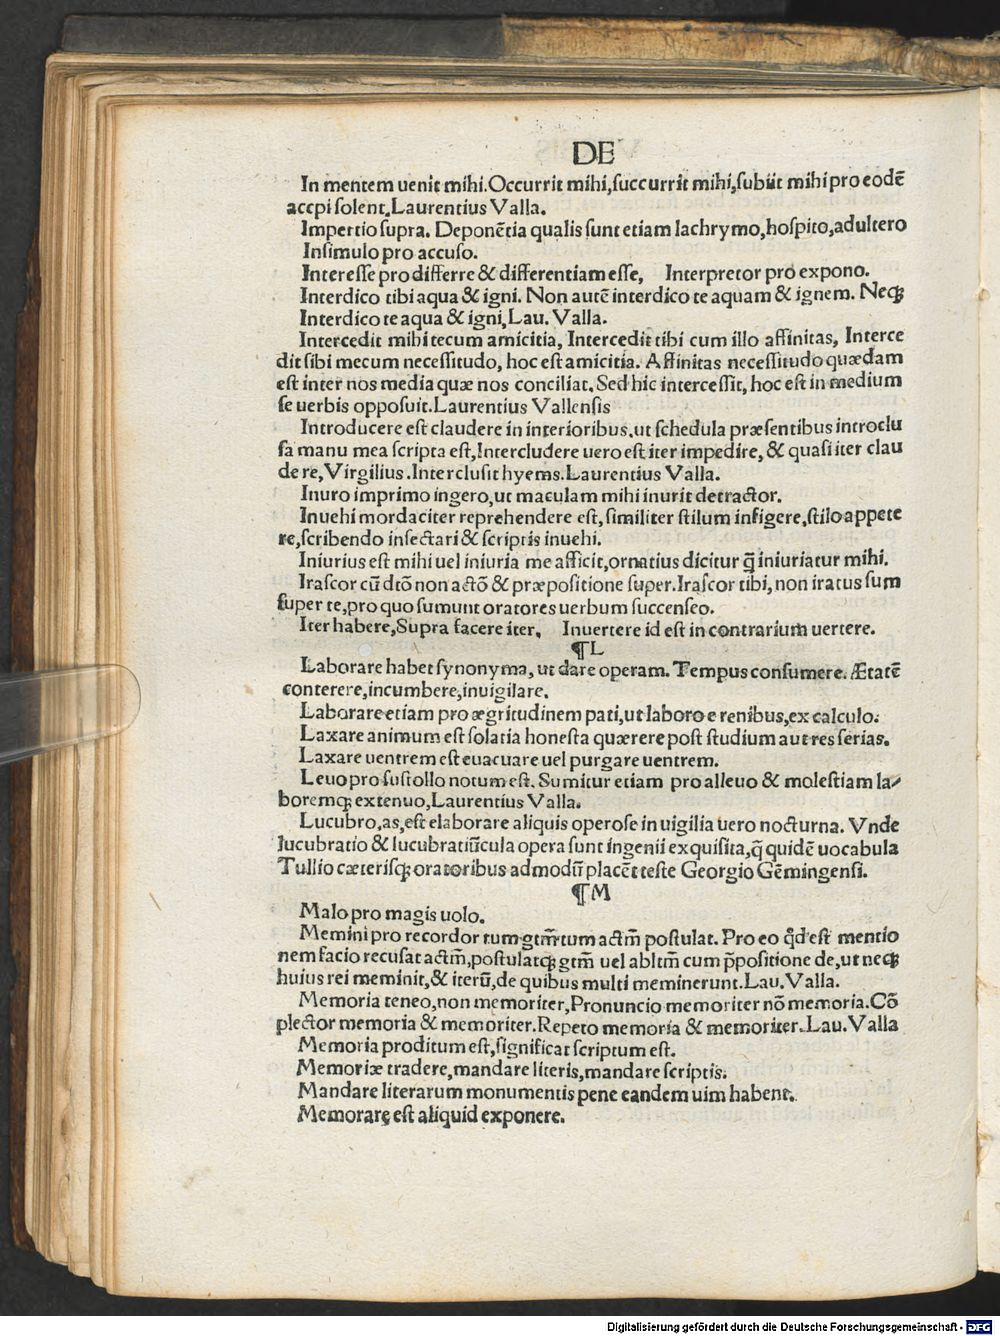 DE
In mentem uenit mihi. Occurrit mihi, succurrit mihi, subiit mihi pro eodē
accpi solent. Laurentius Valla.
Impertio supra. Deponētia qualis sunt etiam lachrymo, hospito, adultero
Insimulo pro accuso.
Interesse pro differre & differentiam esse, Interpretor pro expono.
Interdico tibi aqua & igni. Non autē interdico te aquam & ignem. Neqꝫ
Interdico te aqua & igni, Lau. Valla.
Intercedit mihi tecum amicitia, Intercedit tibi cum illo affinitas, Interce
dit sibi mecum necessitudo, hoc est amicitia. Affinitas necessitudo quædam
est inter nos media quæ nos conciliat. Sed hic intercessit, hoc est in medium
se uerbis opposuit. Laurentius Vallensis
Introducere est claudere in interioribus, ut schedula præsentibus introclu
sa manu mea scripta est, Intercludere uero est iter impedire, & quasi iter clau
dere, Virgilius. Interclusit hyems. Laurentius Valla.
Inuro imprimo ingero, ut maculam mihi inurit detractor.
Inuehi mordaciter reprehendere est, similiter stilum infigere, stilo appete
re, scribendo insectari & scriptis inuehi.
Iniurius est mihi uel iniuria me afficit, ornatius dicitur q̄ iniuriatur mihi.
Irascor cū dtō non actō & præpositione super. Irascor tibi, non iratus sum
super te, pro quo sumunt oratores uerbum succenseo.
Iter habere, Supra facere iter, Inuertere id est in contrarium uertere.
¶L
Laborare habet synonyma, ut dare operam. Tempus consumere. Ætatē
conterere, incumbere, inuigilare.
Laborare etiam pro ægritudinem pati, ut laboro e renibus, ex calculo.
Laxare animum est solatia honesta quærere post studium aut res serias.
Laxare uentrem est euacuare uel purgare uentrem.
Leuo pro sustollo notum est. Sumitur etiam pro alleuo & molestiam la⸗
boremqꝫ extenuo, Laurentius Valla.
Lucubro, as, est elaborare aliquis operose in uigilia uero nocturna. Vnde
lucubratio & lucubratiūcula opera sunt ingenii exquisita, q̄ quidē uocabula
Tullio cæterisqꝫ oratoribus admodū placēt teste Georgio Gēmingensi.
¶M
Malo pro magis uolo.
Memini pro recordor tum gtm̄ tum actm̄ postulat. Pro eo qd̄ est mentio
nem facio recusat actm̄, postulatqꝫ gtm̄ uel abltm̄ cum p̄positione de, ut neqꝫ
huius rei meminit, & iterū, de quibus multi meminerunt. Lau. Valla.
Memoria teneo, non memoriter, Pronuncio memoriter nō memoria. Cō
plector memoria & memoriter. Repeto memoria & memoriter. Lau. Valla
Memoria proditum est, significat scriptum est.
Memoriæ tradere, mandare literis, mandare scriptis.
Mandare literarum monumentis pene eandem uim habent.
Memorare est aliquid exponere.
Digitalisierung gefördert durch die Deutsche Forschungsgemeinschaft - DFG